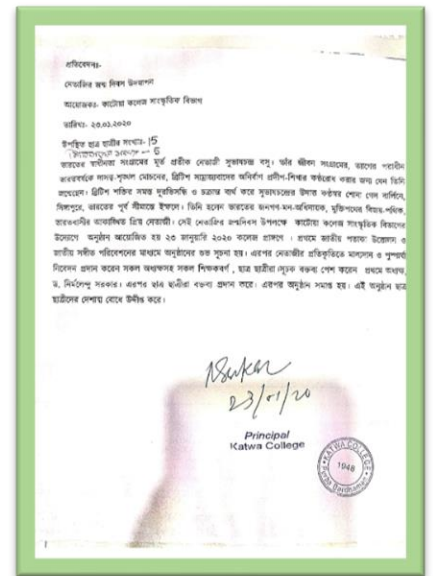 প্রতিবেদনঃ-
নেতাজির জন্ম দিবস উদযাপন
আয়োজকঃ- কাটোয়া কলেজ সাংস্কৃতিক বিভাগ
তারিখঃ- ২৩.০১.২০২০
উপস্থিত ছাত্র ছাত্রীর সংখ্যাঃ- 15
ভারতের স্বাধীনতা সংগ্রামের মূর্ত প্রতীক নেতাজী সুভাষচন্দ্র বসু। তাঁর জীবন সংগ্রামের, ত্যাগের পরাধীন
ভারতবর্ষকে দাসত্ব-শৃঙ্খল মোচনের, ব্রিটিশ সাম্রাজ্যবাদের অনির্বাণ প্রদীপ-শিখার কণ্ঠরোধ করার জন্য যেন তিনি
জন্মেছেন। ব্রিটিশ শক্তির সমস্ত দুরভিসন্ধি ও চক্রান্ত ব্যর্থ করে সুভাষচন্দ্রের উদাত্ত কণ্ঠস্বর শোনা গেল বার্লিনে,
সিঙ্গাপুরে, ভারতের পূর্ব সীমান্তে ইম্ফলে। তিনি হলেন ভারতের জনগণ-মন-অধিনায়ক, মুক্তিপথের বিজয়-পথিক,
ভারতবাসীর আকাঙ্ক্ষিত প্রিয় নেতাজী। সেই নেতাজির জন্মদিবস উপলক্ষে কাটোয়া কলেজ সাংস্কৃতিক বিভাগের
উদ্যোগে অনুষ্ঠান আয়োজিত হয় ২৩ জানুয়ারি ২০২০ কলেজ প্রাঙ্গণে । প্রথমে জাতীয় পতাকা উত্তোলন ও
জাতীয় সঙ্গীত পরিবেশনের মাধ্যমে অনুষ্ঠানের শুভ সূচনা হয়। এরপর নেতাজীর প্রতিকৃতিতে মাল্যদান ও পুষ্পার্ঘ্য
নিবেদন প্রদান করেন সকল অধ্যক্ষসহ সকল শিক্ষকবর্গ , ছাত্র ছাত্রীরা।সূচক বক্তব্য পেশ করেন প্রথমে অধ্যক্ষ,
ড. নির্মলেন্দু সরকার। এরপর ছাত্র ছাত্রীরা বক্তব্য প্রদান করে। এরপর অনুষ্ঠান সমাপ্ত হয়। এই অনুষ্ঠান ছাত্র
ছাত্রীদের বোধে উদ্দীপ্ত করে।
NSarkar
23/01/20
Principal
Katwa College
KATWA COLLEGE
1948
Purba Bardhaman